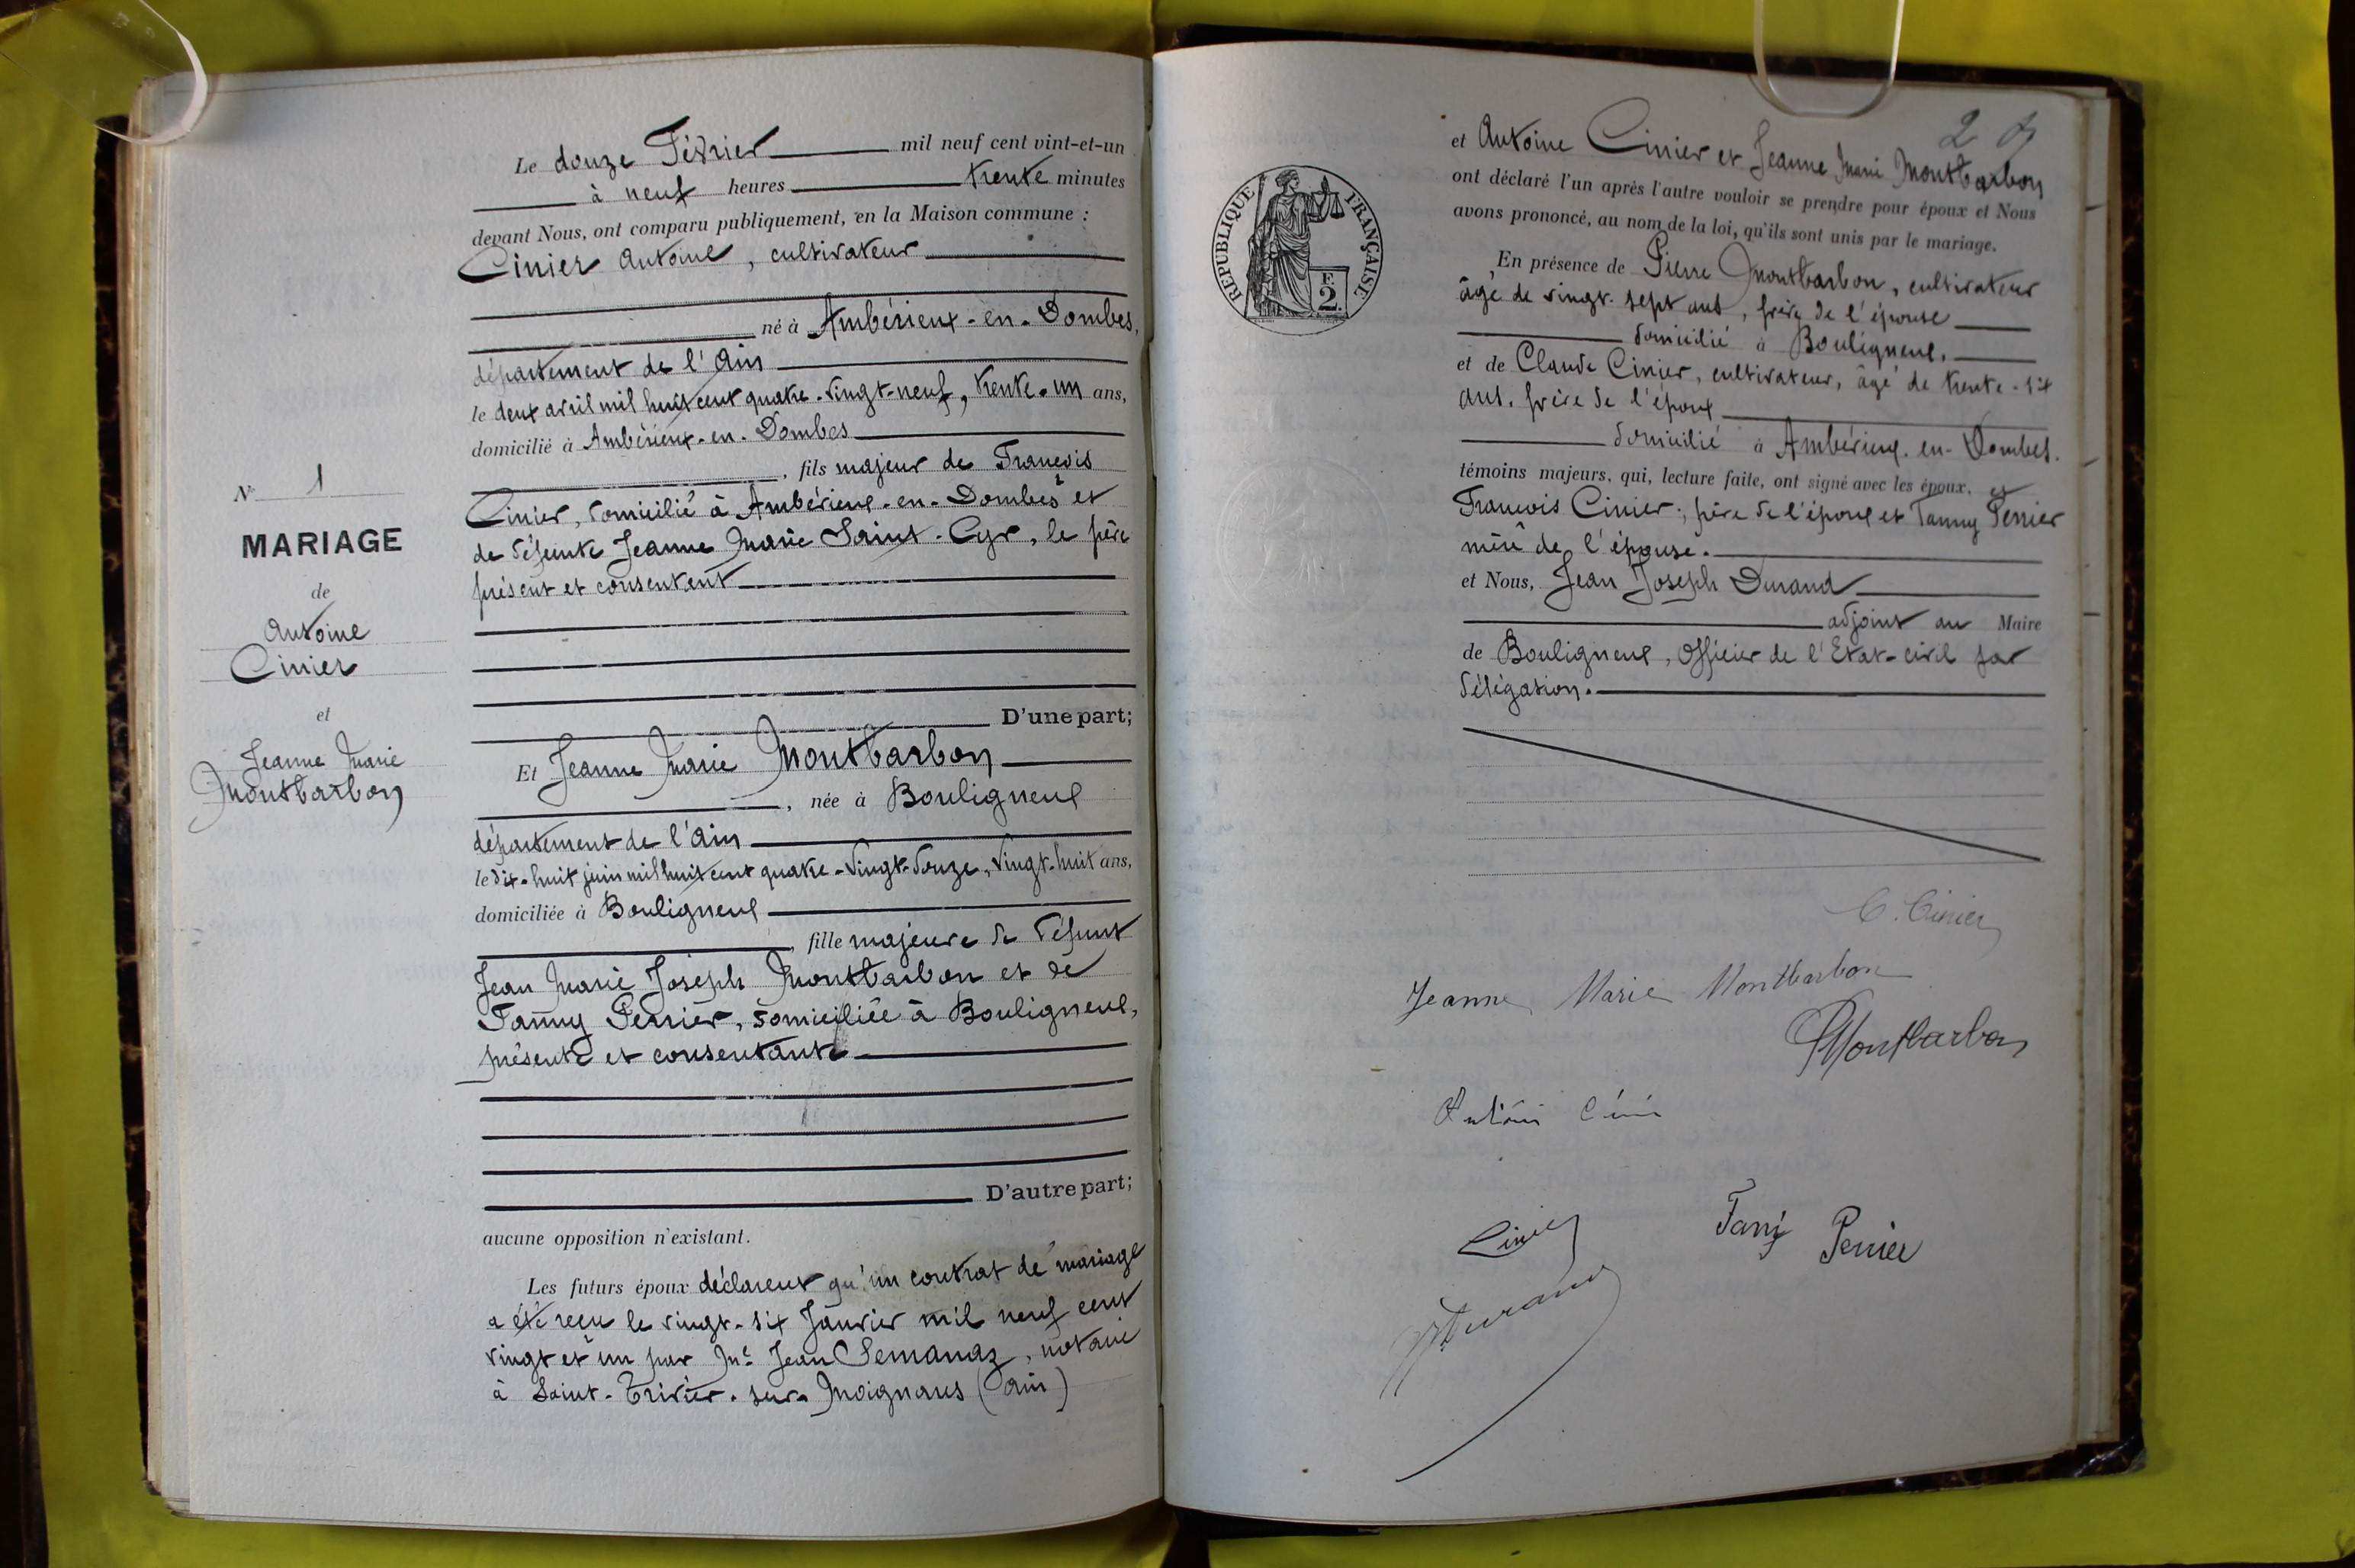 N° 1
MARIAGE
de
Antoine
Cinier
et
Jeanne Marie
Montbarbon
Le douze Février mil neuf cent vint-et-un
à neuf heures trente minutes
devant Nous, ont comparu publiquement, en la Maison commune :
Cinier Antoine, cultivateur
né à Ambérieux-en-Dombes,
département de l'Ain
le deux avril mil huit cent quatre-vingt-neuf, trente-un ans,
domicilié à Ambérieux-en-Dombes
, fils majeur de François
Cinier, domicilié à Ambérieux-en-Dombes et
de défunte Jeanne Marie Saint-Cyr, le père
présent et consentent
D'une part;
Et Jeanne Marie Montbarbon
, née à Bouligneux
département de l'Ain
le dix-huit juin mil huit cent quatre-vingt-douze, vingt-huit ans,
domiciliée à Bouligneux
, fille majeure de défunt
Jean Marie Joseph Montbarbon et de
Fanny Perrier, domiciliée à Bouligneux,
présente et consentante
D'autre part;
aucune opposition n'existant.
Les futurs époux déclarent qu'un contrat de mariage
a été reçu le vingt-six Janvier mil neuf cent
vingt et un par Me Jean Semanaz, notaire
à Saint-Trivier-sur-Moignans (Ain)
RÉPUBLIQUE FRANÇAISE
F.
2
2
et Antoine Cinier et Jeanne Marie Montbarbon
ont déclaré l'un après l'autre vouloir se prendre pour époux et Nous
avons prononcé, au nom de la loi, qu'ils sont unis par le mariage.
En présence de Pierre Montbarbon, cultivateur
âgé de vingt-sept ans, frère de l'épouse
domicilié à Bouligneux,
et de Claude Cinier, cultivateur, âgé de trente-six
ans, frère de l'époux
domicilié à Ambérieux-en-Dombes.
témoins majeurs, qui, lecture faite, ont signé avec les époux, et
François Cinier, père de l'époux et Fanny Perrier
mère de l'épouse.
et Nous, Jean Joseph Durand
adjoint au Maire
de Bouligneux, Officier de l'Etat-civil par
délégation.
C. Cinier
Jeanne Marie Montbarbon
PMontbarbon
Antoine Cinié
Cinier
Fany Perrier
Durand